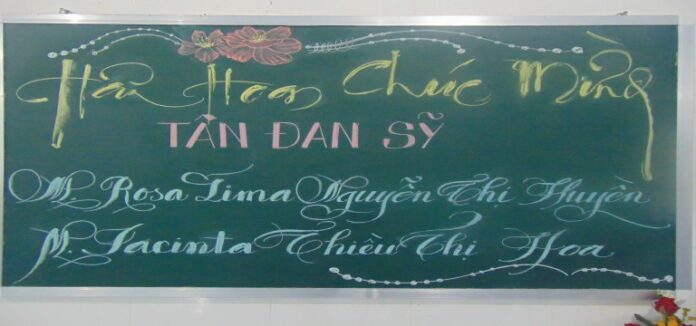 Hân Hoan Chúc Mừng
TÂN ĐAN SỸ
M. Rosa Lima Nguyễn Thị Huyền
M. Jacinta Thiều Thị Hoa